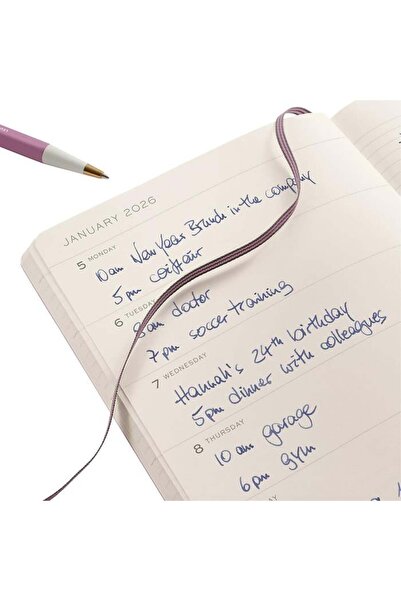 JANUARY 2026
5 MONDAY
10 am New Year Brunch in the company
5 pm coiffeur
6 TUESDAY
8 am doctor
7 pm soccer training
7 WEDNESDAY
Hannah's 24th birthday
5 pm dinner with colleagues
8 THURSDAY
10 am garage
6 pm gym